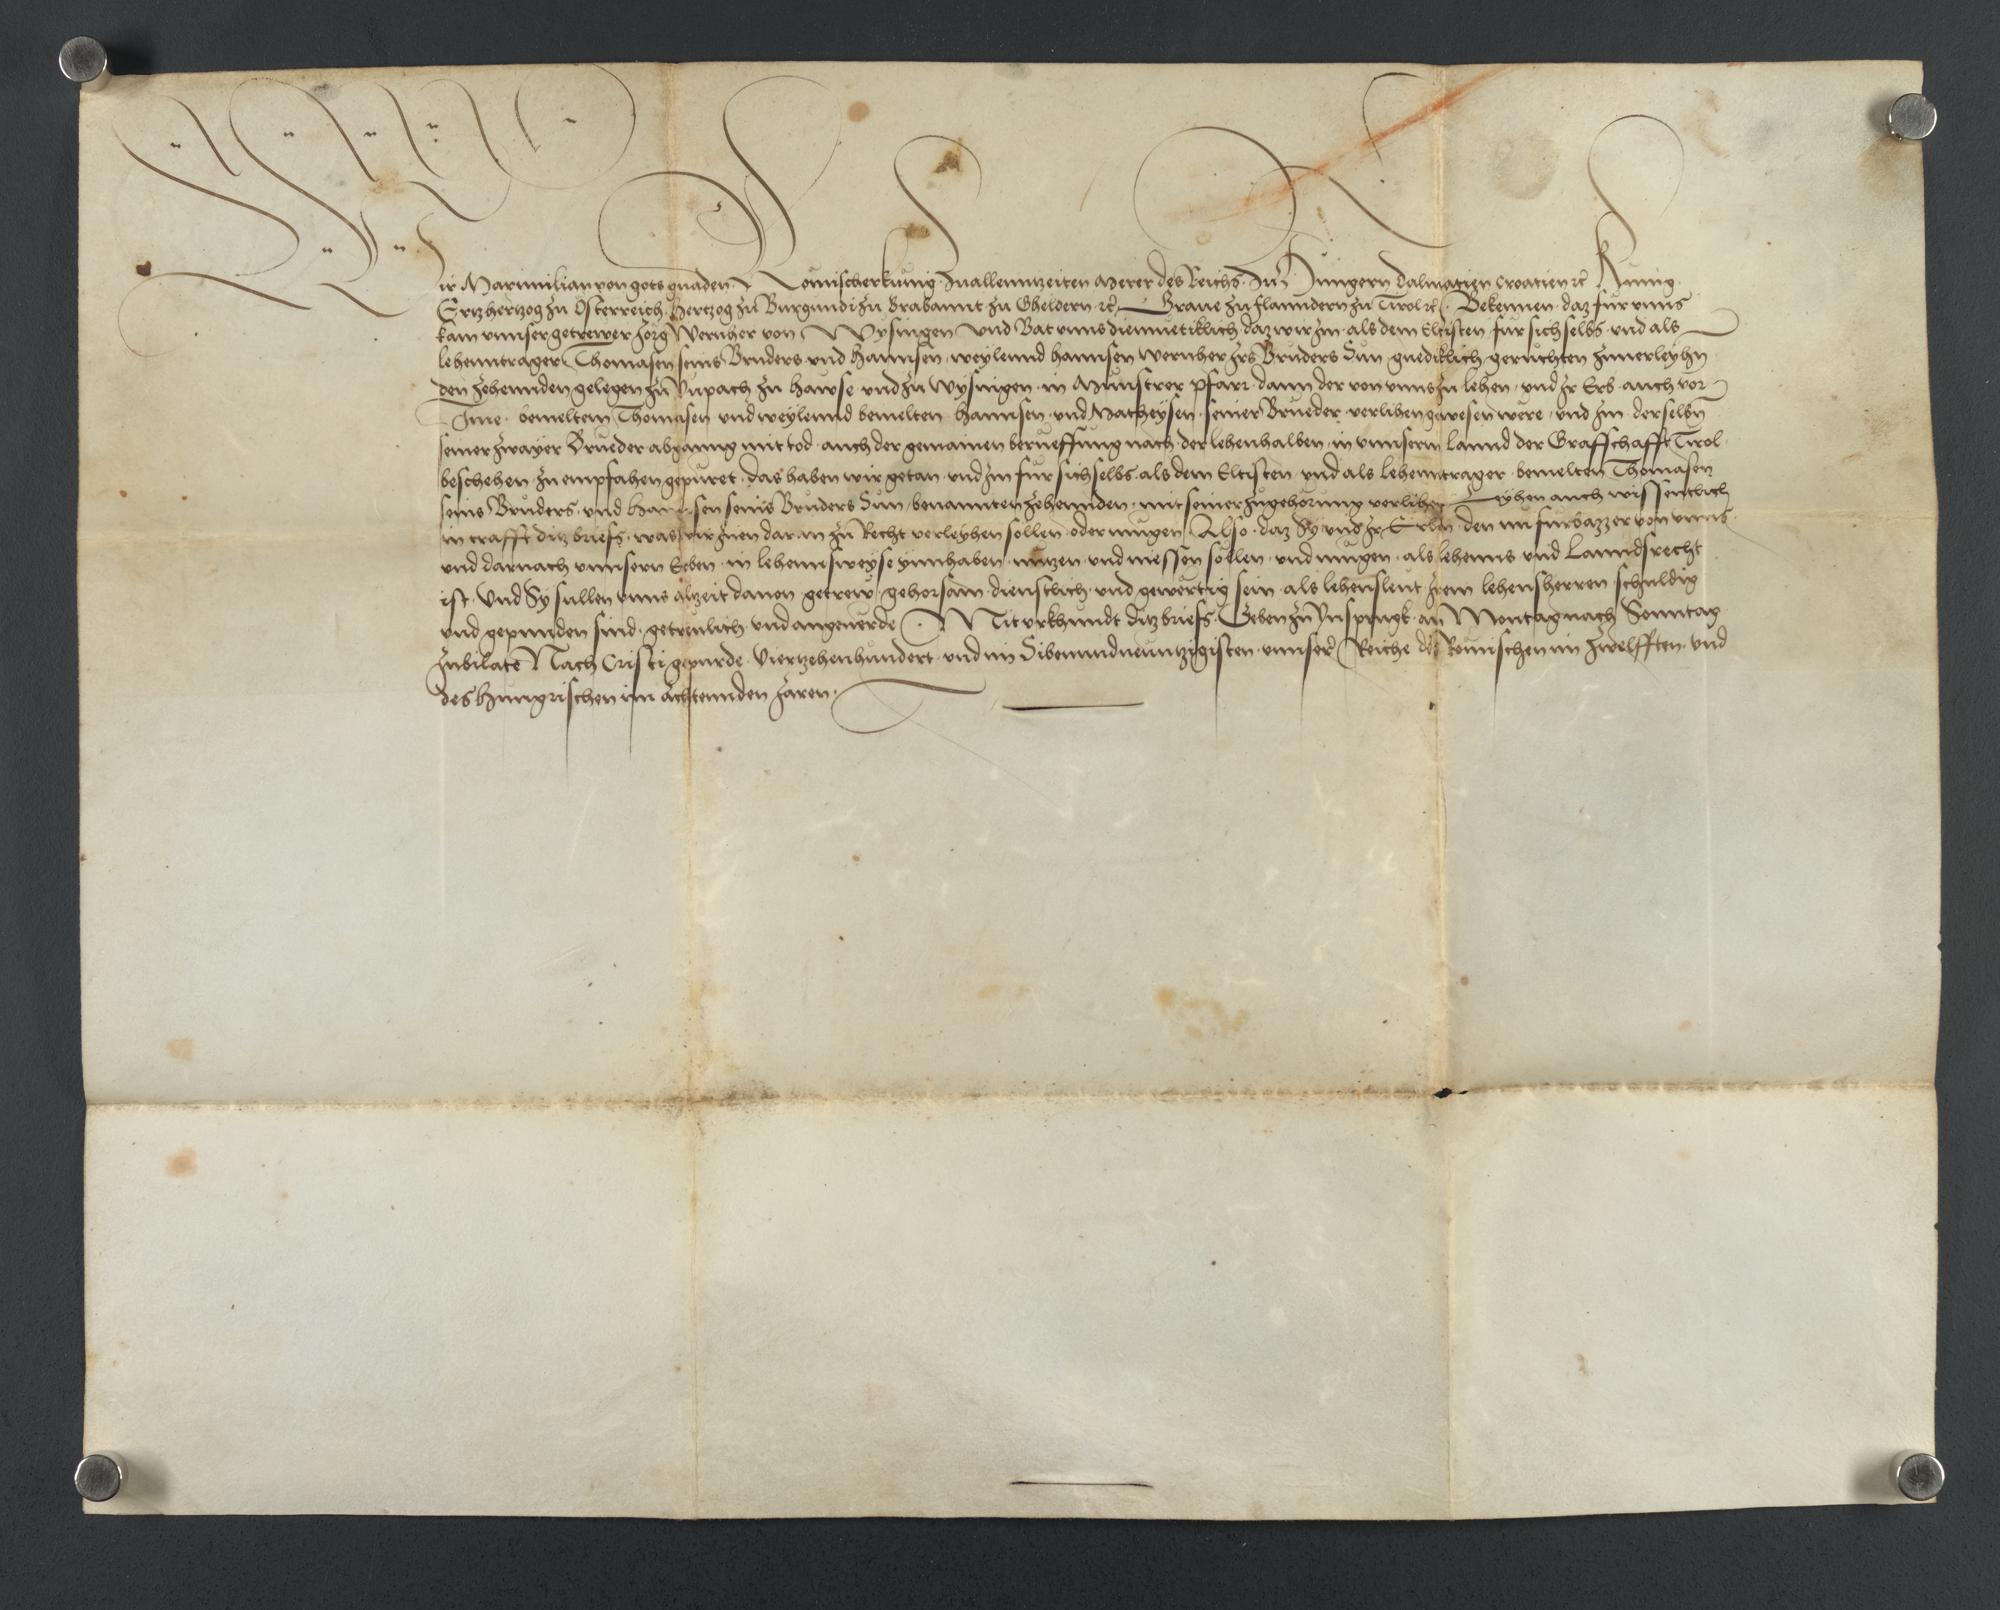 Wir Maximilian von gots gnaden Römischer kunig zu allenntzeiten Merer des Reichs zu Hungern Dalmatien Croatien etc̃ Kunig
Ertzhertzog zu Österreich Hertzog zu Burgundi zu Brabannt zu Gheldern etc̃ Graue zu flanndern zu Tirol etc̃ Bekennen daz für vnns
kam vnnser getrewer Jörg Wernher von Wysingen vnd Bat vnns diemuetiklich daz wir Jm als dem Eltisten für sich selbs vnd als
lehenntrager Thomasen seins Bruders vnd Hannsen weylennd Hannsen Wernher Jrs Bruders Sun gnediklich geruchten zuuerleyhn
den zehennden gelegen zu Pupach zu Hawse vnd zu Wysingen in Munstrer pfarr dann der von vnns zu lehen vnd Jr Erb auch vor
Jme bemeltem Thomasen vnd weylennd bemelten Hannsen vnd Matheysen seiner Brueder verlihen gewesen were vnd Jm derselbn
seiner zwayer Brueder abganng mit tod auch der gemainen berueffung nach der lehenhalben in vnnserm lannd der Graffschafft Tirol
beschehen zu empfahen gepüret das haben wir getan vnd Jm für sich selbs als dem Eltisten vnd als lehenntrager bemelten Thomasen
seins Bruders vnd Hannsen seins Bruders Sun benannten zehennden mit seiner zugehörung verlihen Leyhen auch wissentlich
in crafft ditz briefs was wir Jnen daran zu Recht verleyhen sollen oder mugen Also daz Sy vnd Jr Erbn den nu fürbazzer von vnns
vnd darnach vnnsern Erben in lehennsweyse ynnhaben nutzen vnd niessen söllen vnd mugen als lehenns vnd Lanndsrecht
ist Vnd Sy sullen vnns altzeit dauon getrew gehorsam dienstlich vnd gewertig sein als lehensleut Jrem lehensherren schuldig
vnd gepunden sind getrewlich vnd angeuerde Mit vrkhundt ditz briefs Geben zu Ynsprugk an Montag nach Sonntag
Jubilate Nach Cristi gepurde Viertzehenhundert vnd im Sibenundneuntzigisten vnnser̃ Reiche des Römischen im zwelfften vnd
des Hungrischen im achtennden Jaren